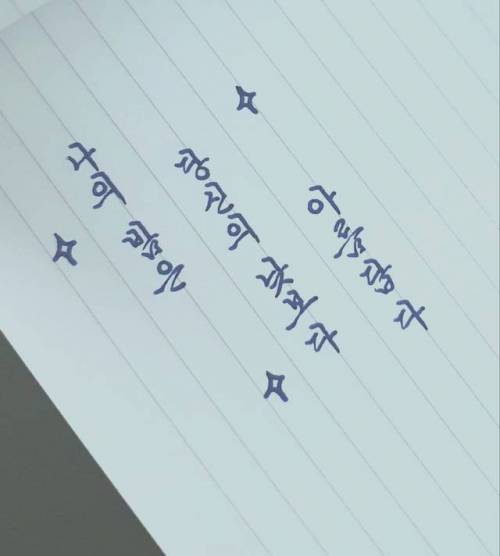 나의 밤은
당신의 낮보다
아름답다